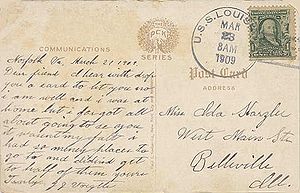 U.S.S. LOUIS
MAR
23
8AM
1909
COMMUNICATIONS
PCK
SERIES
Post Card
ADDRESS
Norfolk Va. March 21, 1909.
Dear friend I hear with drop
you a card to let you no
I am well and I was at
home but I forgot all
about going to see you
it wasent my falt I
had so meney places to
go to and didend get
to half of them yours
Truly
Miss Ida
West Main St.
Bellville
Ill.